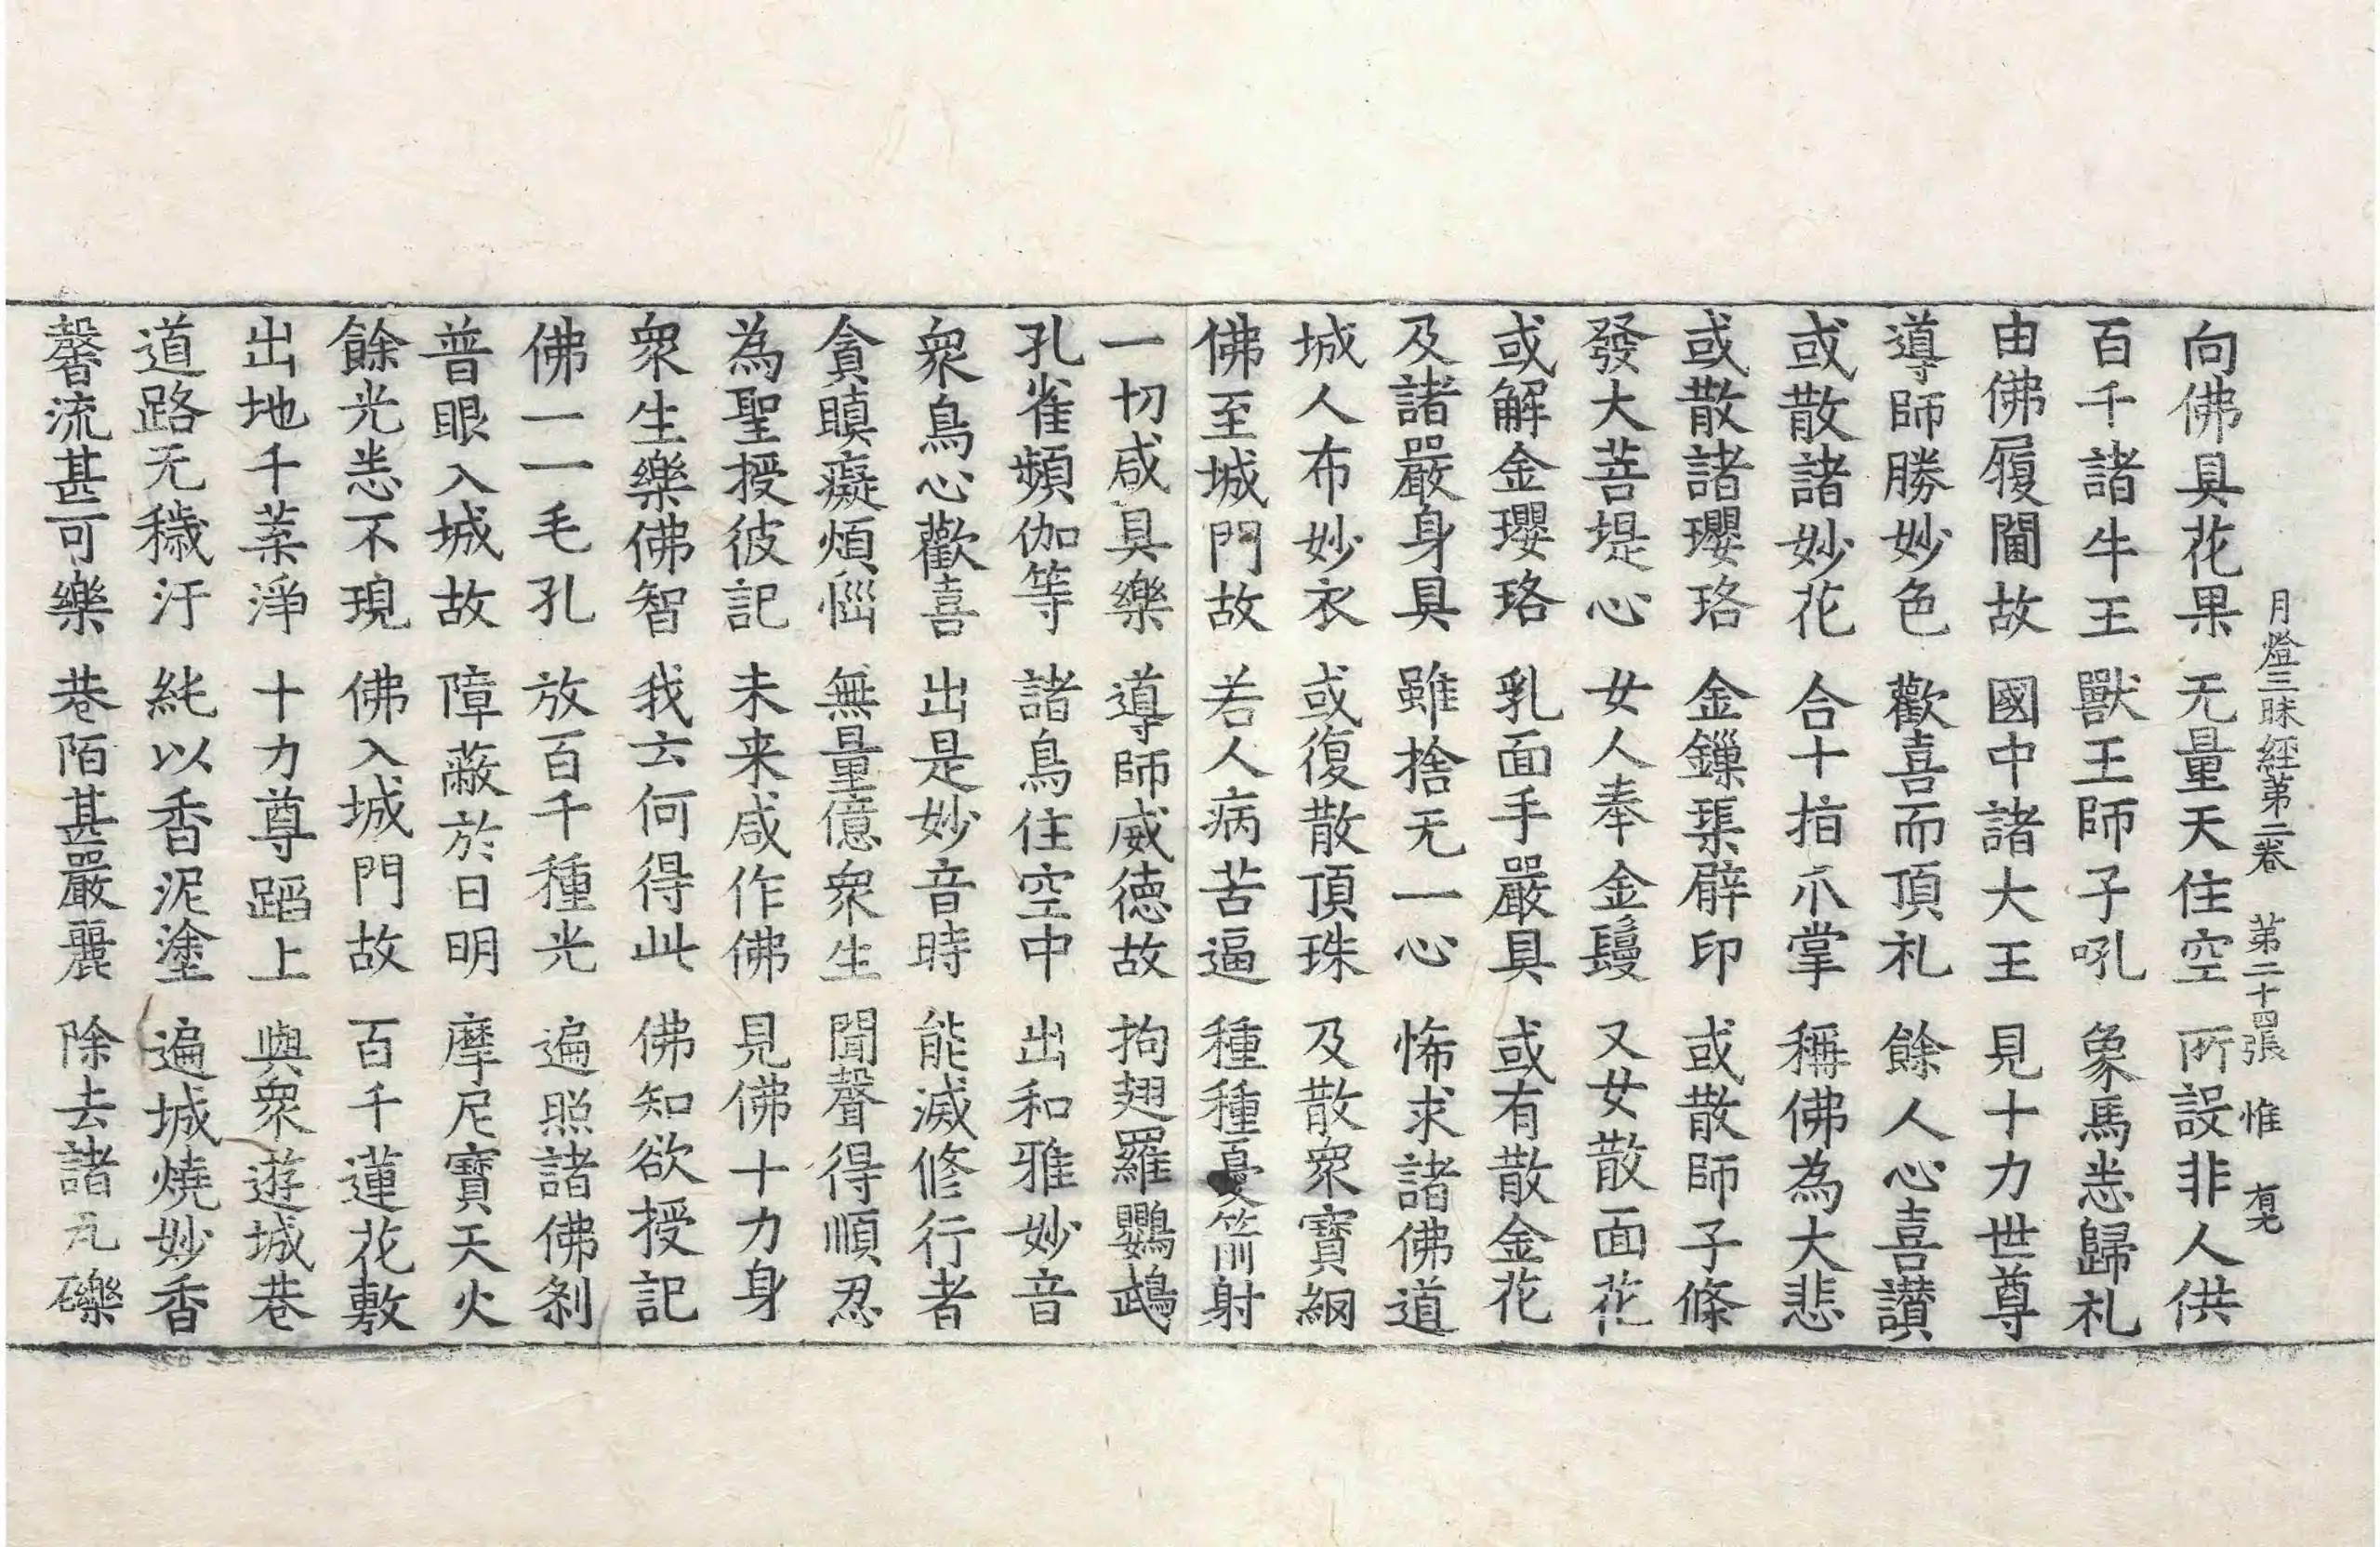 月燈三昧經第二卷 第二十四張 惟
向佛具花果 无量天住空 所設非人供
百千諸牛王 獸王師子吼 象馬恙歸礼
由佛履閫故 國中諸大王 見十力世尊
導師勝妙色 歡喜而頂礼 餘人心喜讃
或散諸妙花 合十指爪掌 稱佛為大悲
或散諸瓔珞 金鏁渠臂印 或散師子絛
發大菩提心 女人奉金鬘 又女散面花
或解金瓔珞 乳面手嚴具 或有散金花
及諸嚴身具 雖捨无一心 悕求諸佛道
城人布妙衣 或復散頂珠 及散衆寶網
佛至城門故 若人病苦逼 種種憂箭射
一切咸具樂 導師威徳故 拘翅羅鸚鵡
孔雀頻伽等 諸鳥住空中 出和雅妙音
衆鳥心歡喜 出是妙音時 能滅修行者
貪瞋癡煩惱 無量億衆生 聞聲得順忍
為聖授彼記 未来咸作佛 見佛十力身
衆生樂佛智 我去何得此 佛知欲授記
佛一一毛孔 放百千種光 遍照諸佛刹
普眼入城故 障蔽於日明 摩尼寶天火
餘光恙不現 佛入城門故 百千蓮花敷
出地千葉淨 十力尊蹈上 與衆遊城巷
道路无穢汙 純以香泥塗 遍城燒妙香
馨流甚可樂 巷陌甚嚴麗 除去諸瓦礫